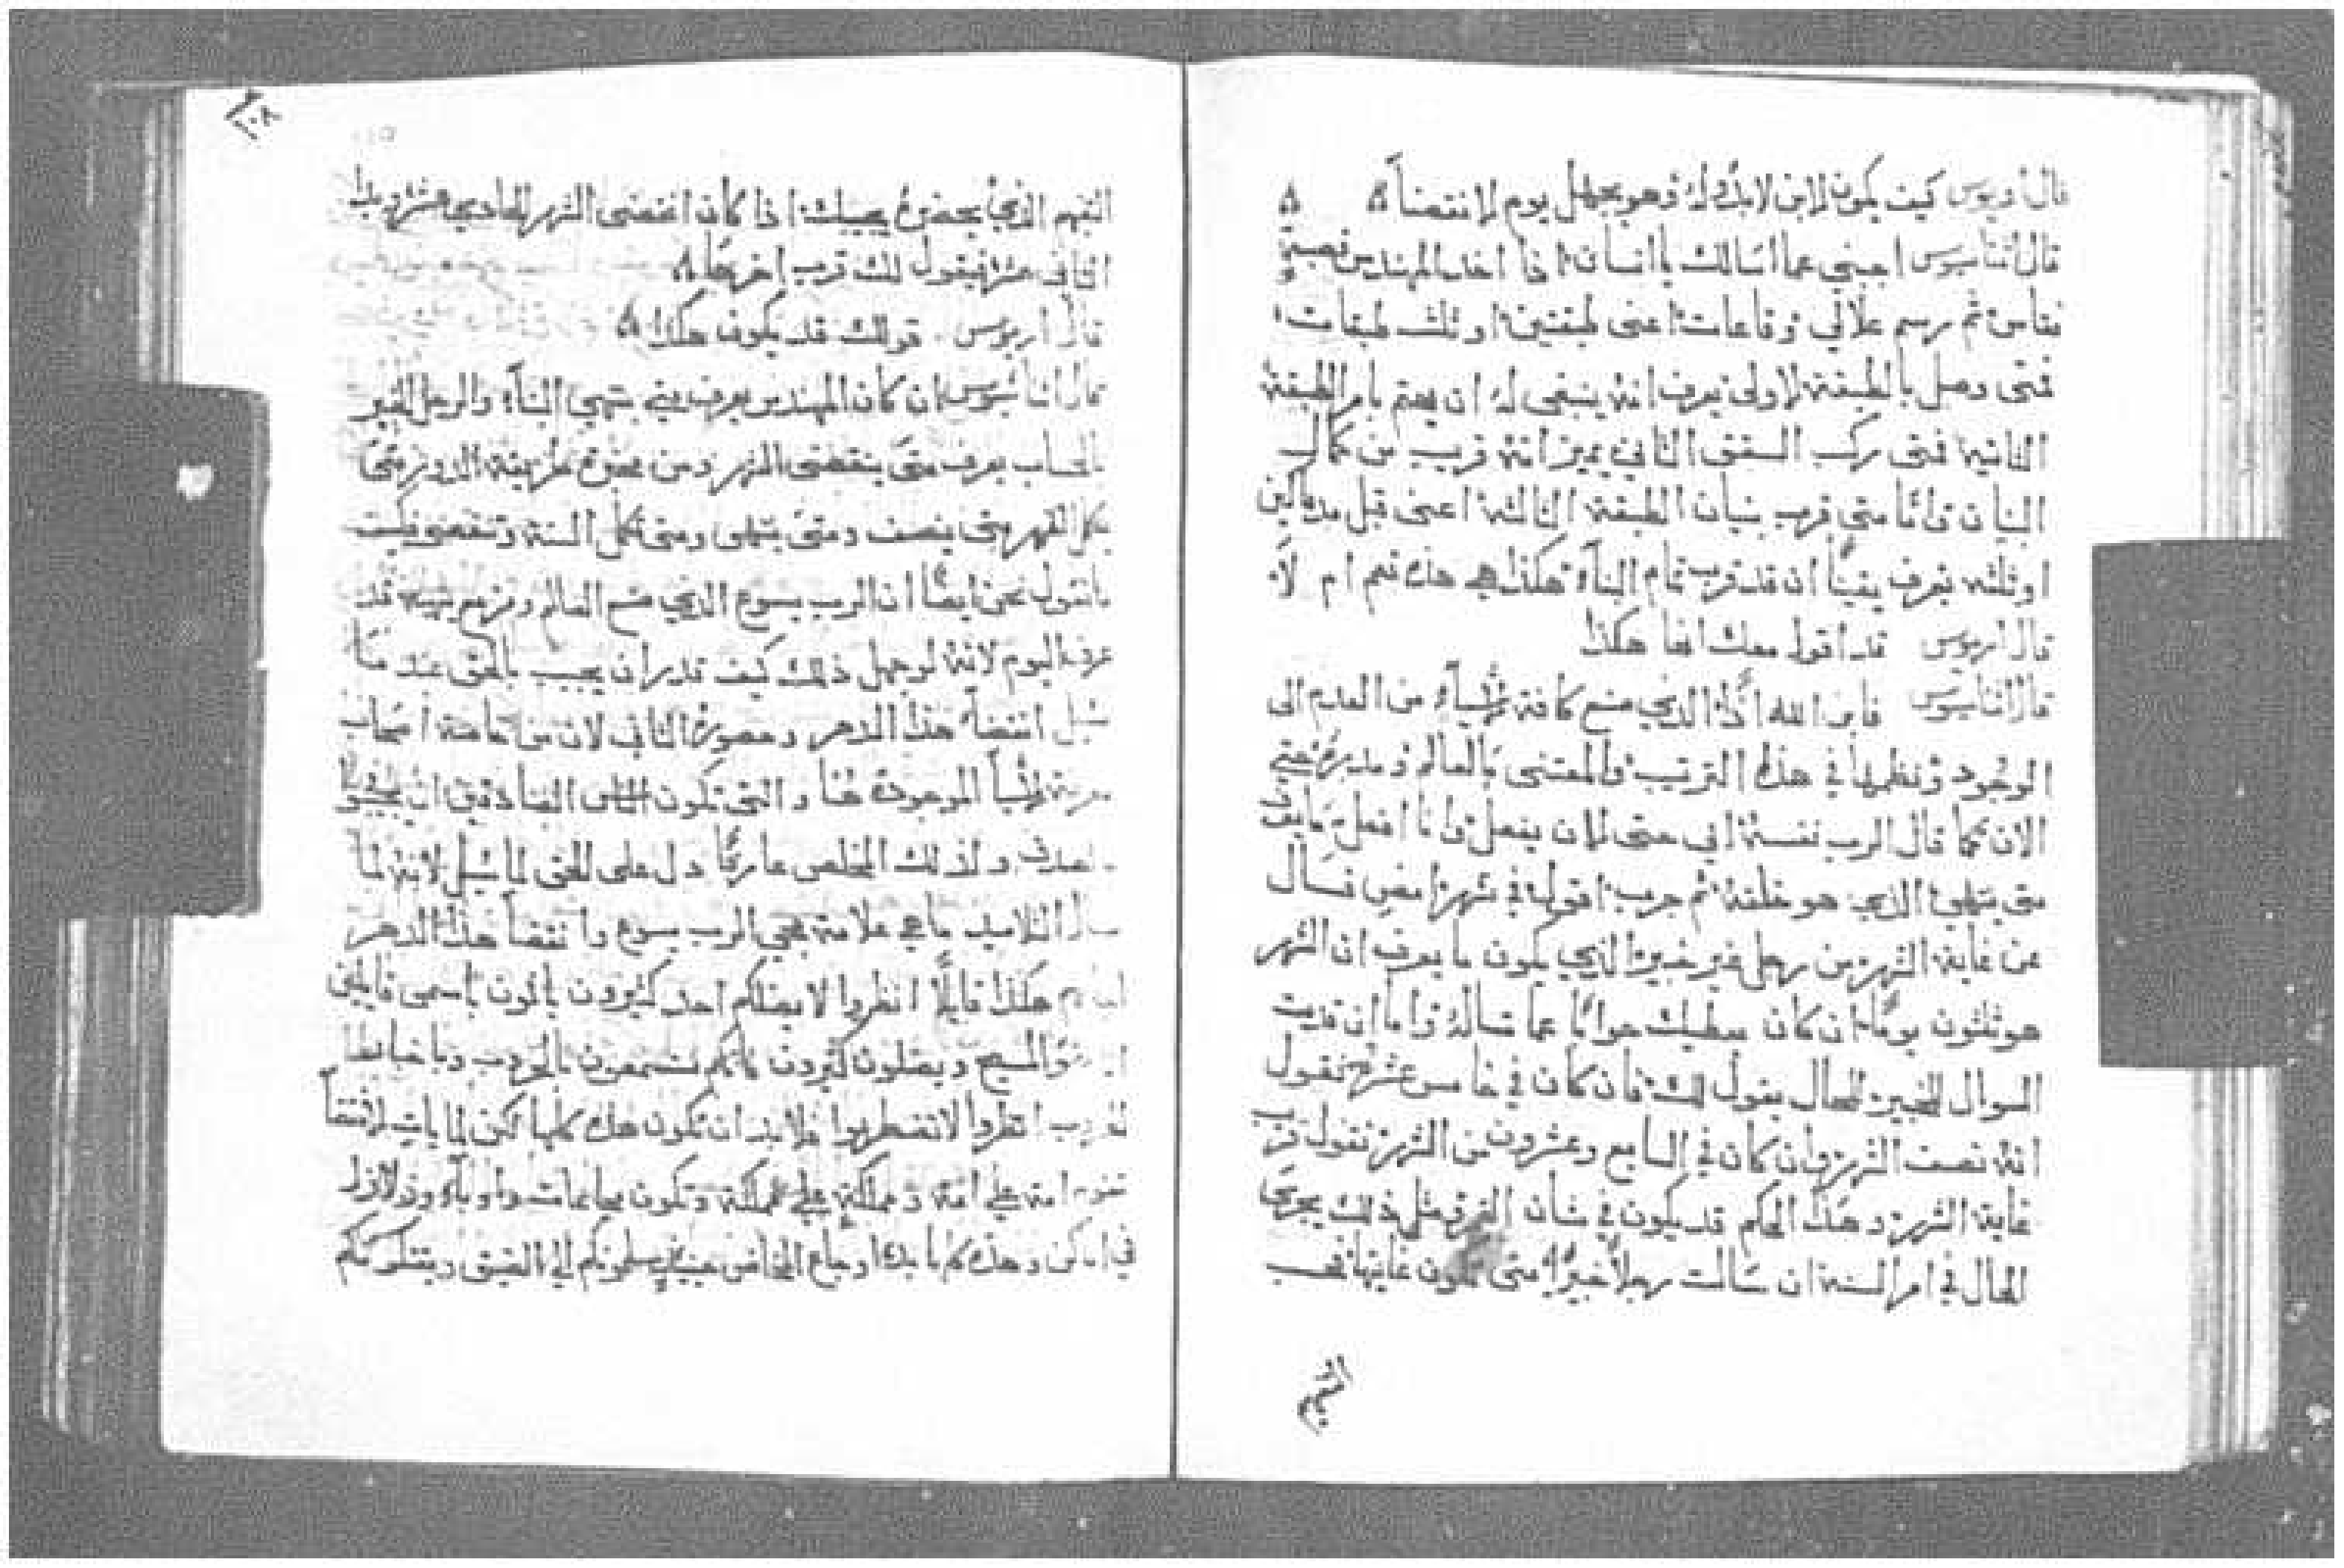 قال اريوس كيف يكون الابن لابدؤ له وهو يجهل يوم الانقضاء
قال اثناسيوس اجبني عما اسالك يا انسان اذا اخذ المهندس قصبة
فقاس ثم رسم علالي وقاعات اعنى طبقتين او ثلث طبقات
فمتى وصل بالطبقة الاولى يعرف انه ينبغى له ان يهتم بامر الطبقة
الثانيه فمتى ركب السقف الثاني يميز انه قريب من كمال
البنيان واما متى قرب بنيان الطبقة الثالثة اعنى قبل مدماكين
او ثلثه يعرف يقينًا ان قد قرب تمام البناء هكذا هي هذه نعم ام لا
قال اريوس قد اقول معك انها هكذا
قال اثناسيوس فابن الله اذًا الذي صنع كافة الاشياء من العدم الى
الوجود ونظمها في هذا الترتيب والمعتنى بالعالم ومدبره حتى
الان كما قال الرب نفسه ابي حتى الان يفعل وانا افعل
متى ينتهي الذي هو خلقه ثم جرب اقول في شهر فسال
عن غاية الشهر من رجل غير خبير الذي يكون ما يعرف ان الشهر
هو ثلثون يومًا ان كان يعطيك جوابًا عما تساله واما ان قدمت
السوال للخبير للحال يقول لك فان كان في خامس عشره نقول
انه نصف الشهر وان كان في السابع وعشرون من الشهر نقول قرب
غاية الشهر وهذا الحكم قد يكون في شان القمر ومثل ذلك يجري
الحال في امر السنة ان سالت رجلًا خبيرًا متى تكون غايتها
الفهيم
٢٠٨
الفهيم الذي يجيبك اذا كان انقضى الشهر الحادي عشر وبدا
الثاني عشر فيقول لك قرب اخرها
قال اريوس قولك قد يكون هكذا
قال اثناسيوس ان كان المهندس يعرف متى ينتهي البناء والرجل الخبير
بالحساب يعرف متى ينقضى الشهر ومن طريقة الدور متى
يكمل القمر متى ينصف ومتى ينتهى ومتى تكمل السنة وتنقضى فكيف
ما نقول نحن ايضًا ان الرب يسوع الذي صنع العالم قد
عرف اليوم لانه لو جهل ذلك كيف قدر ان يجيب بالحق عند ما
سُيل انقضاء هذا الدهر وحضوره الثاني لان من خاصة اصحاب
معرفة الاشياء الموجودة هنا والتي تكون الصادقين ان يجيبوا
ولذلك المخلص عارفًا دل على الحق لما سُيل لانه لما
سال التلاميد ما هي علامة مجي الرب يسوع وانقضاء هذا الدهر
هكذا قايلًا انظروا لا يضلكم احد كثيرون ياتون باسمى قايلين
المسيح ويضلون كثيرون فانكم تسمعون بالحروب وباخبار
انظروا لا تضطربوا فلابد ان تكون هذه كلها لكن لم يات الانقضاء
تقوم امة على امة ومملكة على مملكة وتكون مجاعات واوباء وزلازل
في اماكن وهذه كلها بدء اوجاع المخاض حينيذٍ يسلمونكم الى الضيق ويقتلونكم